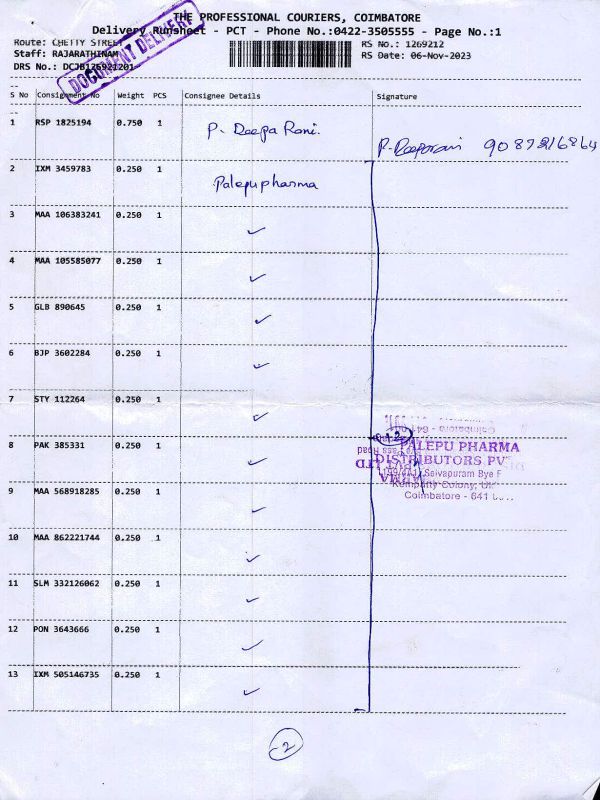 THE PROFESSIONAL COURIERS, COIMBATORE
Delivery Runsheet - PCT - Phone No.:0422-3505555 - Page No.:1
Route: CHETTY STREET
Staff: RAJARATHINAM
DRS No.: DCJB126921201
RS No.: 1269212
RS Date: 06-Nov-2023
DOCUMENT DELIVERY
S No Consignment No Weight PCS Consignee Details Signature
1 RSP 1825194 0.750 1 P. Deepa Rani. P. Deeparani
2 IXM 3459783 0.250 1 Palepu pharma
3 MAA 106383241 0.250 1 ✓
4 MAA 105585077 0.250 1 ✓
5 GLB 890645 0.250 1 ✓
6 BJP 3602284 0.250 1 ✓
7 STY 112264 0.250 1 ✓
8 PAK 385331 0.250 1 ✓
9 MAA 568918285 0.250 1 ✓
10 MAA 862221744 0.250 1 ✓
11 SLM 332126062 0.250 1 ✓
12 PON 3643666 0.250 1 ✓
13 IXM 505146735 0.250 1 ✓
PALEPU PHARMA
DISTRIBUTORS PVT
Selvapuram Bye
Colony,
Coimbatore - 641
2